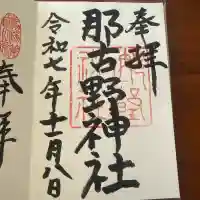 奉拝
那古野神社
令和七年十一月八日
奉拝